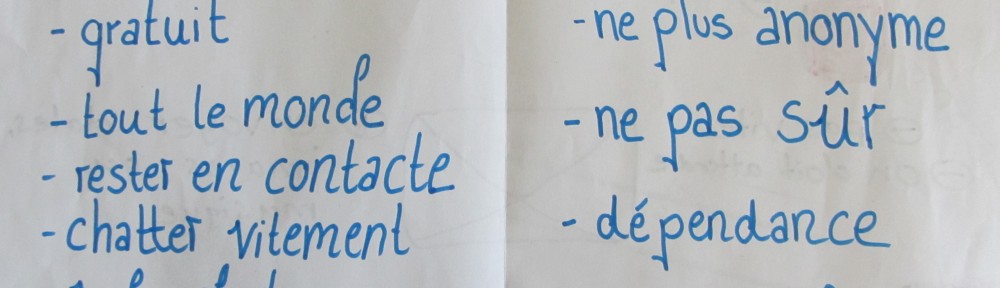 - gratuit
- tout le monde
- rester en contacte
- chatter vitement
- ne plus anonyme
- ne pas sûr
- dépendance